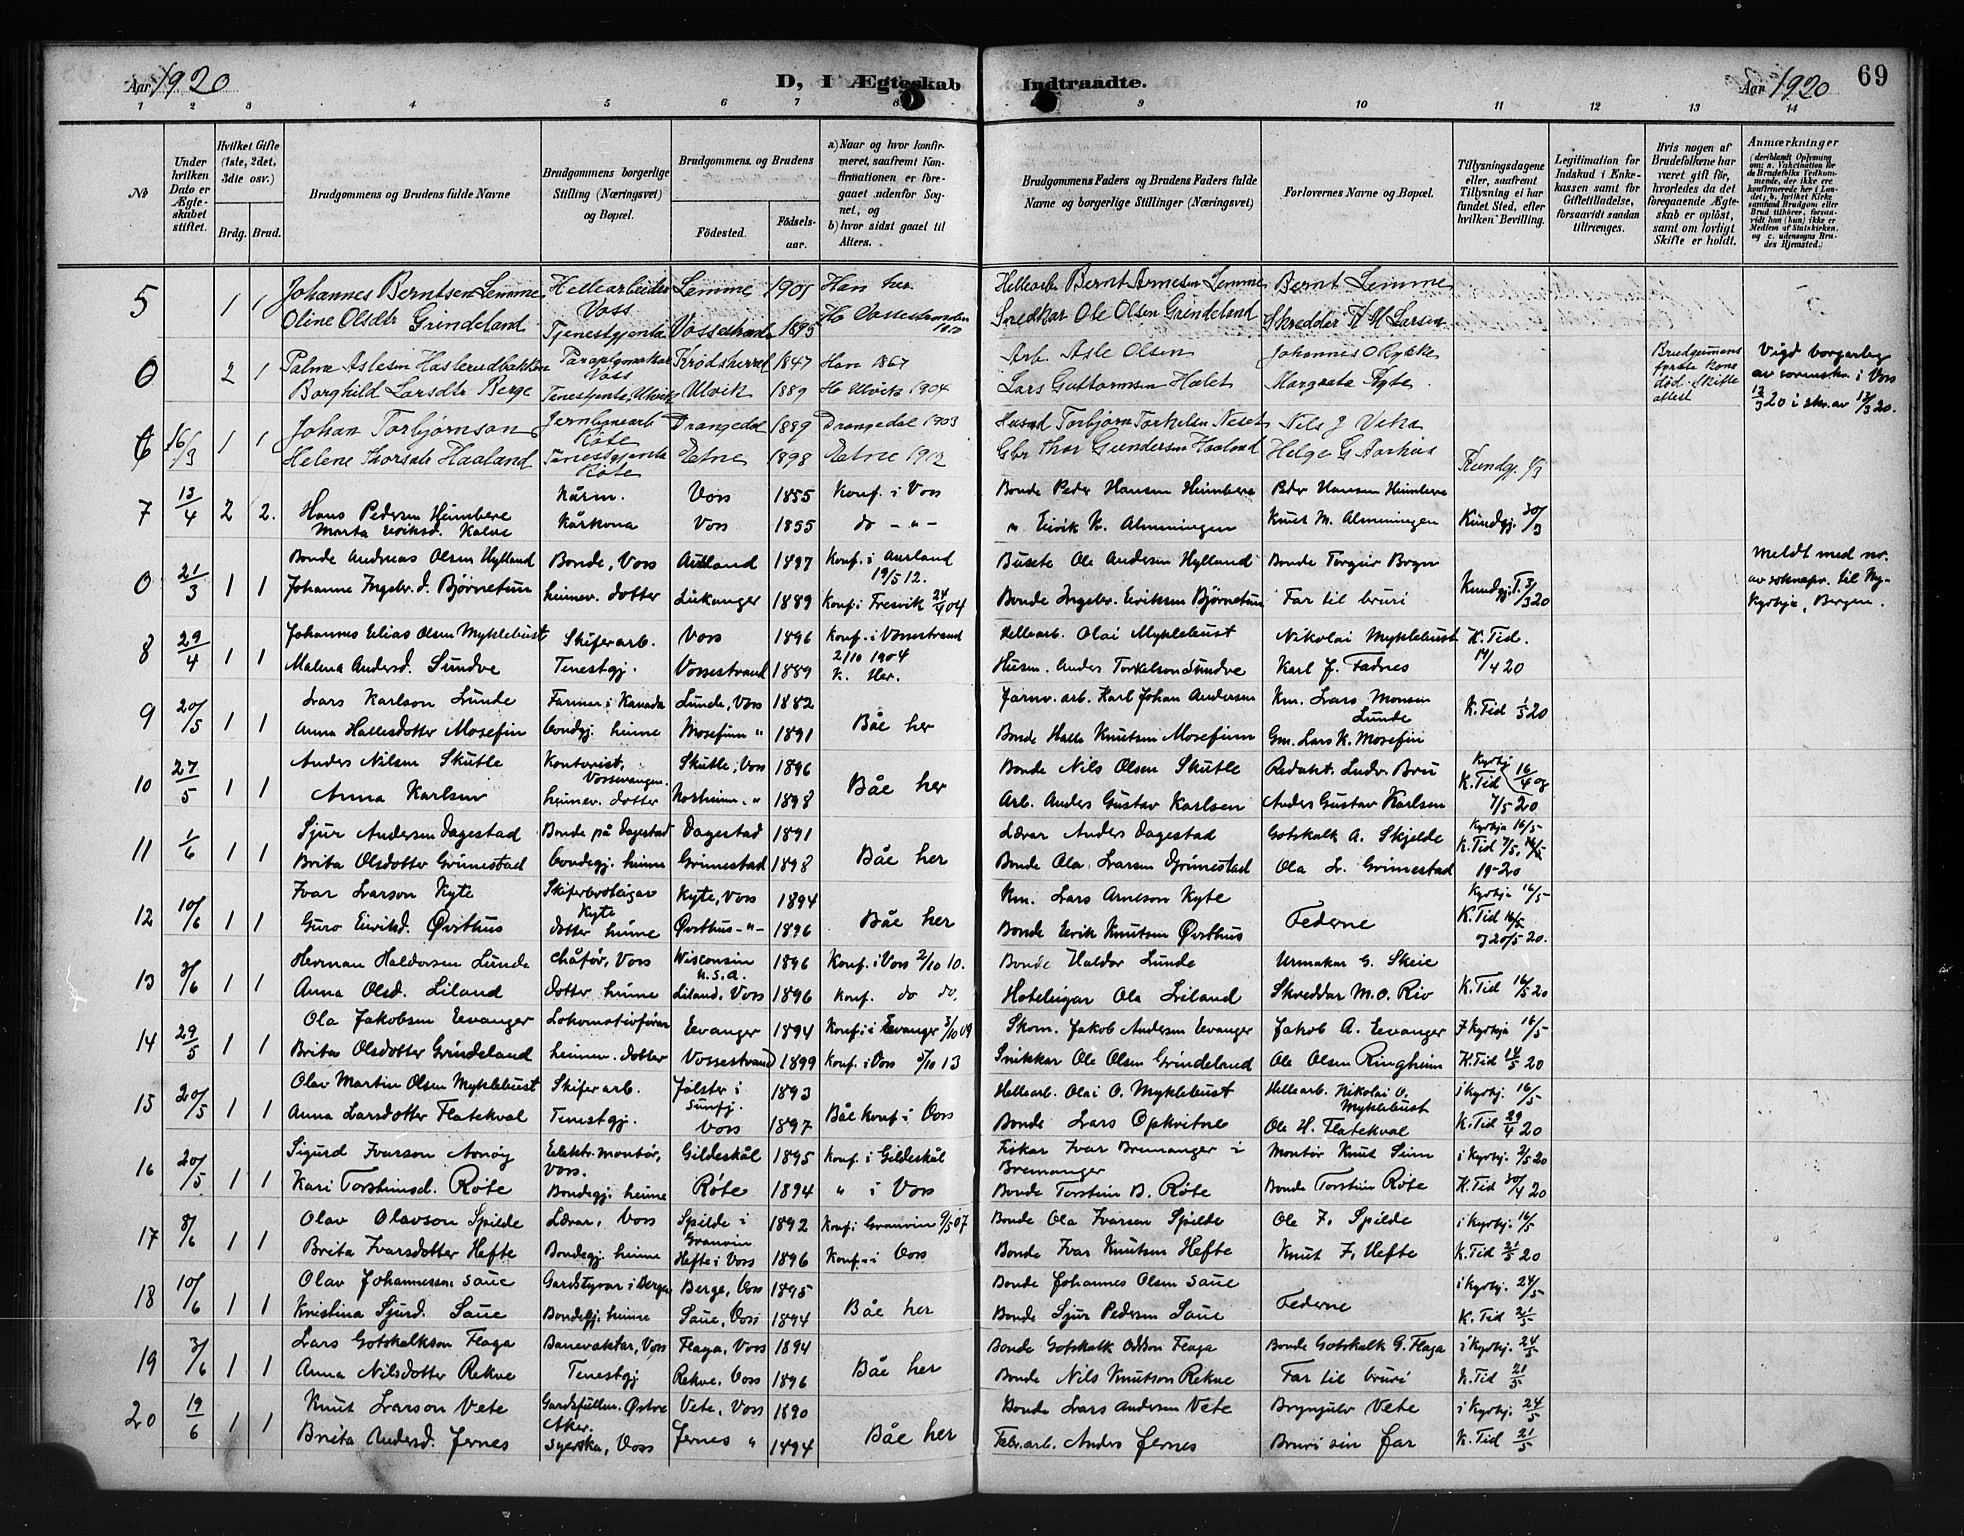 Aar 1920 D, I Ægteskab Indtraadte. Aar 1920 69
1 2 3 4 5 6 7 8 9 10 11 12 13 14
No
Under hvilken Dato er Ægteskabet stiftet.
Hvilket Gifte (1ste, 2det, 3die osv.)
Brdg. Brud.
Brudgommens og Brudens fulde Navne
Brudgommens borgerlige Stilling (Næringsvei) og Bopæl.
Brudgommens og Brudens
Fødested. Fødselsaar.
a) Naar og hvor konfirmeret, saafremt Konfirmationen er foregaaet udenfor Sognet, og
b) hvor sidst gaaet til Alters.
Brudgommens Faders og Brudens Faders fulde Navne og borgerlige Stillinger (Næringsvei)
Forlovernes Navne og Bopæl.
Tillysningsdagene eller, saafremt Tillysning ei har fundet Sted, efter hvilken Bevilling.
Legitimation for Indskud i Enkekassen samt for Giftetilladelse, forsaavidt saadan tiltrænges.
Hvis nogen af Brudefolkene har været gift før, hvorledes da det foregaaende Ægteskab er opløst, samt om lovligt Skifte er holdt.
Anmærkninger
5 1 1 Johannes Berntsen Lemme Hellearbeider Lemme 1901 Han her. Hellearb. Bernt Arnesen Lemme Bernt Lemme
Voss
Oline Olsdtr Grindeland Tenestgjenta Vossestrand 1895 Ho Vossestranden 1910 Snedkar Ole Olsen Grindeland Skredder A M Larsen
0 2 1 Palme Aslesen Haslerudbakken Paraplymakar Krødsherred 1847 Han 1867 Arb. Asle Olsen Johannes O Rykke Brudgumens fyrste kone død. Skifteattest Vigd borgarleg av sorenskr. i Voss 12/3 20 i skr. av 17/3 20.
Voss
Borghild Larsdtr Berge Tenestjente, Ulvik Ulvik 1889 Ho Ulvik 1904 Lars Guttormsen Hælet Margreta Kyte
6 16/3 1 1 Johan Torbjørnson Jernbanearb Drangedal 1889 Drangedal 1903 Husmd Torbjørn Torkelsen Neset Nils J Veka
Røte
Helene Thorsdtr Haaland Tenestgjenta Etne 1898 Etne 1912 Gbr Thor Gundersen Haaland Helge G Aarhus Kundgj. 1/3
Røte
7 13/4 2 2. Hans Pedersen Heimbere Kårm. Voss 1855 Konf. i Voss Bonde Peder Hansen Heimbere Peder Hansen Heimbere
Marta Eiriksd. Kalve Kårkona Voss 1855 do - " - " Eirik K. Almeningen Knut M. Almeningen Kundgj. 30/3
0 21/3 1 1 Bonde Andreas Olsen Hylland Bonde, Voss Aurland 1897 Konf. i Aurland 19/5 12. Busete Ole Andersen Hylland Bonde Torgeir Brygn Meldt med nr. av soknepr. til Nykyrkja, Bergen.
Johanne Ingebr. d. Bjørnetun heimev. dotter Leikanger 1889 Konf. i Fresvik 24/4 04 Bonde Ingebr. Eiriksen Bjørnetun Far til bruri Kundgj. T. 3/3 20
8 29/4 1 1 Johannes Elias Olsen Myklebust Skiferarb. Voss 1896 Konf. i Vossestrand 2/10 1904 Hellearb. Olai Myklebust Nikolai Myklebust K. Tid.
Malena Andersd. Sundve Tenestgj. Vossestrand 1889 K. Her. Husm. Anders Torkelson Sundve Karl J. Fadnes 14/4 20
9 20/5 1 1 Lars Karlson Lunde Farmer i Kanada Lunde, Voss 1882 Båe her Jarnv. arb. Karl Johan Andersen Km. Lars Monsen Lunde K. Tid 1/5 20
Anna Hallesdotter Mosefin bondgj. heime Mosefinn " 1891 Bonde Halle Knutsen Mosefinn Gm. Lars K. Mosefin
10 27/5 1 1 Anders Nilsen Skutle Kontorist, Vossevangen. Skutle, Voss 1896 Båe her Bonde Nils Olsen Skutle Redakt. Ludv. Bru Kyrkj 16/4 og
Anna Karlsen heimev. dotter Norheim. " 1898 Arb. Anders Gustav Karlsen Anders Gustav Karlsen K. Tid 7/5 20
11 1/6 1 1 Sjur Andersen Dagestad Bonde på Dagestad Dagestad 1891 Båe her Lærar Anders Dagestad Gotskalk A. Skjelde Kyrkja 16/5
Brita Olsdotter Grimestad bondegj. heime Grimestad 1898 Bonde Ola Larsen Grimestad Ola L. Grimestad K. Tid 7/5, 19-20
12 10/6 1 1 Ivar Larson Kyte Skiferbrotseigar Kyte Kyte, Voss 1894 Båe her Km. Lars Arneson Kyte Federne Kyrkja 16/5
Guro Eiriksd. Øvsthus dotter heime Øvsthus - " - 1896 Bonde Eirik Knutsen Øvsthus K. Tid 14/5 og 20/5 20.
13 3/6 1 1 Herman Haldorsen Lunde Chåfør, Voss Wisconsin U.S.A. 1896 Konf. i Voss 2/10 10. Bonde Haldor Lunde Urmakar G. Skeie
Anna Olsd. Liland dotter heime Liland, Voss 1896 Konf. do do. Hoteleigar Ola Liland Skreddar M. O. Riv K. Tid 16/5 20
14 29/5 1 1 Ola Jakobsen Evanger Lokomotivførar Evanger 1894 Konf. i Evanger 3/10 09 Skom. Jakob Andersen Evanger Jakob A. Evanger I kyrkja 16/5
Brita Olsdotter Grindeland heimev. dotter Vossestrand 1899 Konf. i Voss 5/10 13 Snikkar Ole Olsen Grindeland Ole Olsen Ringheim K. Tid 14/5 20
15 20/5 1 1 Olav Martin Olsen Myklebust Skiferarb. Jølster i Sunfj. 1893 Båe konf. i Voss Hellearb. Olai O. Myklebust Hellearb. Nikolai O. Myklebust i kyrkj. 16/5
Anna Larsdotter Flatekval Tenestgj. Voss 1897 Bonde Lars Opkvitne Ole H. Flatekval K. Tid 29/4 20
16 20/5 1 1 Sigurd Ivarson Arnøy Elektr. montør, Voss. Gildeskål 1895 Konf. i Gildeskål Fiskar Ivar Bremanger i Bremanger Montør Knut Seim i kyrkj. 2/5 20
Kari Torsteinsd. Røte Bondegj. heime Røte 1894 " i Voss Bonde Torstein B. Røte Bonde Torstein Røte K. Tid 30/4 20
17 8/6 1 1 Olav Olavson Spilde Lærar, Voss Spilde i Granvin 1892 Konf. i Granvin 9/5 07 Bonde Ola Ivarsen Spilde Ole I. Spilde i kyrkj. 16/5
Brita Ivarsdotter Hefte Bondegj. heime Hefte i Voss 1896 Konf. i Voss Bonde Ivar Knutsen Hefte Knut I. Hefte K. Tid 21/5 20
18 10/6 1 1 Olav Johannessen Saue Gardstyrar i Berge Berge, Voss 1895 Båe her Bonde Johannes Olsen Saue Federne i kyrkj. 24/5
Kristina Sjurd. Saue Bondegj. heime Saue, Voss 1894 Bonde Sjur Pedersen Saue K. Tid 21/5
19 3/6 1 1 Lars Gotskalkson Flaga Banevaktar, Voss Flaga, Voss 1894 Båe her Bonde Gotskalk Oddson Flaga Bonde Gotskalk G. Flaga i kyrkj. 24/5
Anna Nilsdotter Rekve Tenestgj Rekve, Voss 1896 Bonde Nils Knutson Rekve Far til bruri K. Tid 21/5
20 19/6 1 1 Knut Larson Vete Gardsfullm. Østre Aker. Vete, Voss 1890 Båe her Bonde Lars Andersen Vete Brynjulv Vete i kyrkj. 24/5
Brita Andersd. Jernes Syerska, Voss Jernes " 1894 Fabr. arb. Anders Jernes Bruri sin far K. Tid 21/5